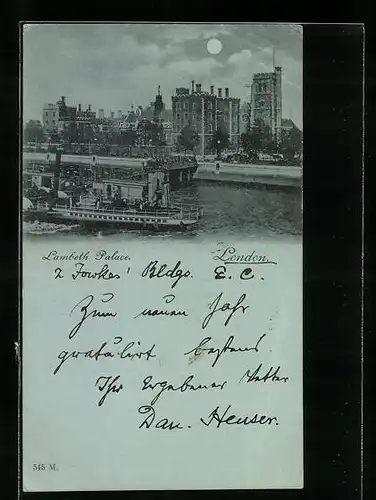 Lambeth Palace. London.
2 Fowkes' Bldgs. E. C.
Zum neuen Jahr
gratulirt bestens
Ihr Ergebener Vetter
Dan. Heuser.
545 M.